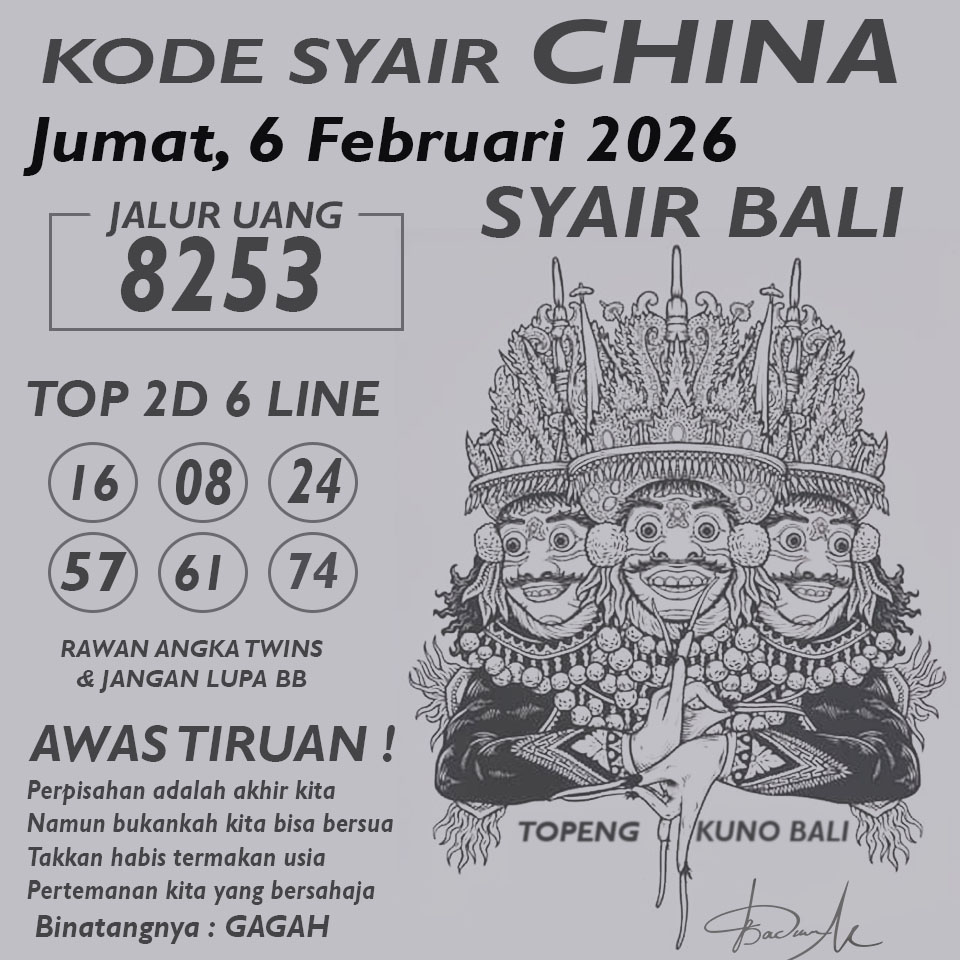 KODE SYAIR CHINA
Jumat, 6 Februari 2026
SYAIR BALI
JALUR UANG
8253
TOP 2D 6 LINE
16 08 24
57 61 74
RAWAN ANGKA TWINS
& JANGAN LUPA BB
AWAS TIRUAN !
Perpisahan adalah akhir kita
Namun bukankah kita bisa bersua
Takkan habis termakan usia
Pertemanan kita yang bersahaja
Binatangnya : GAGAH
TOPENG KUNO BALI